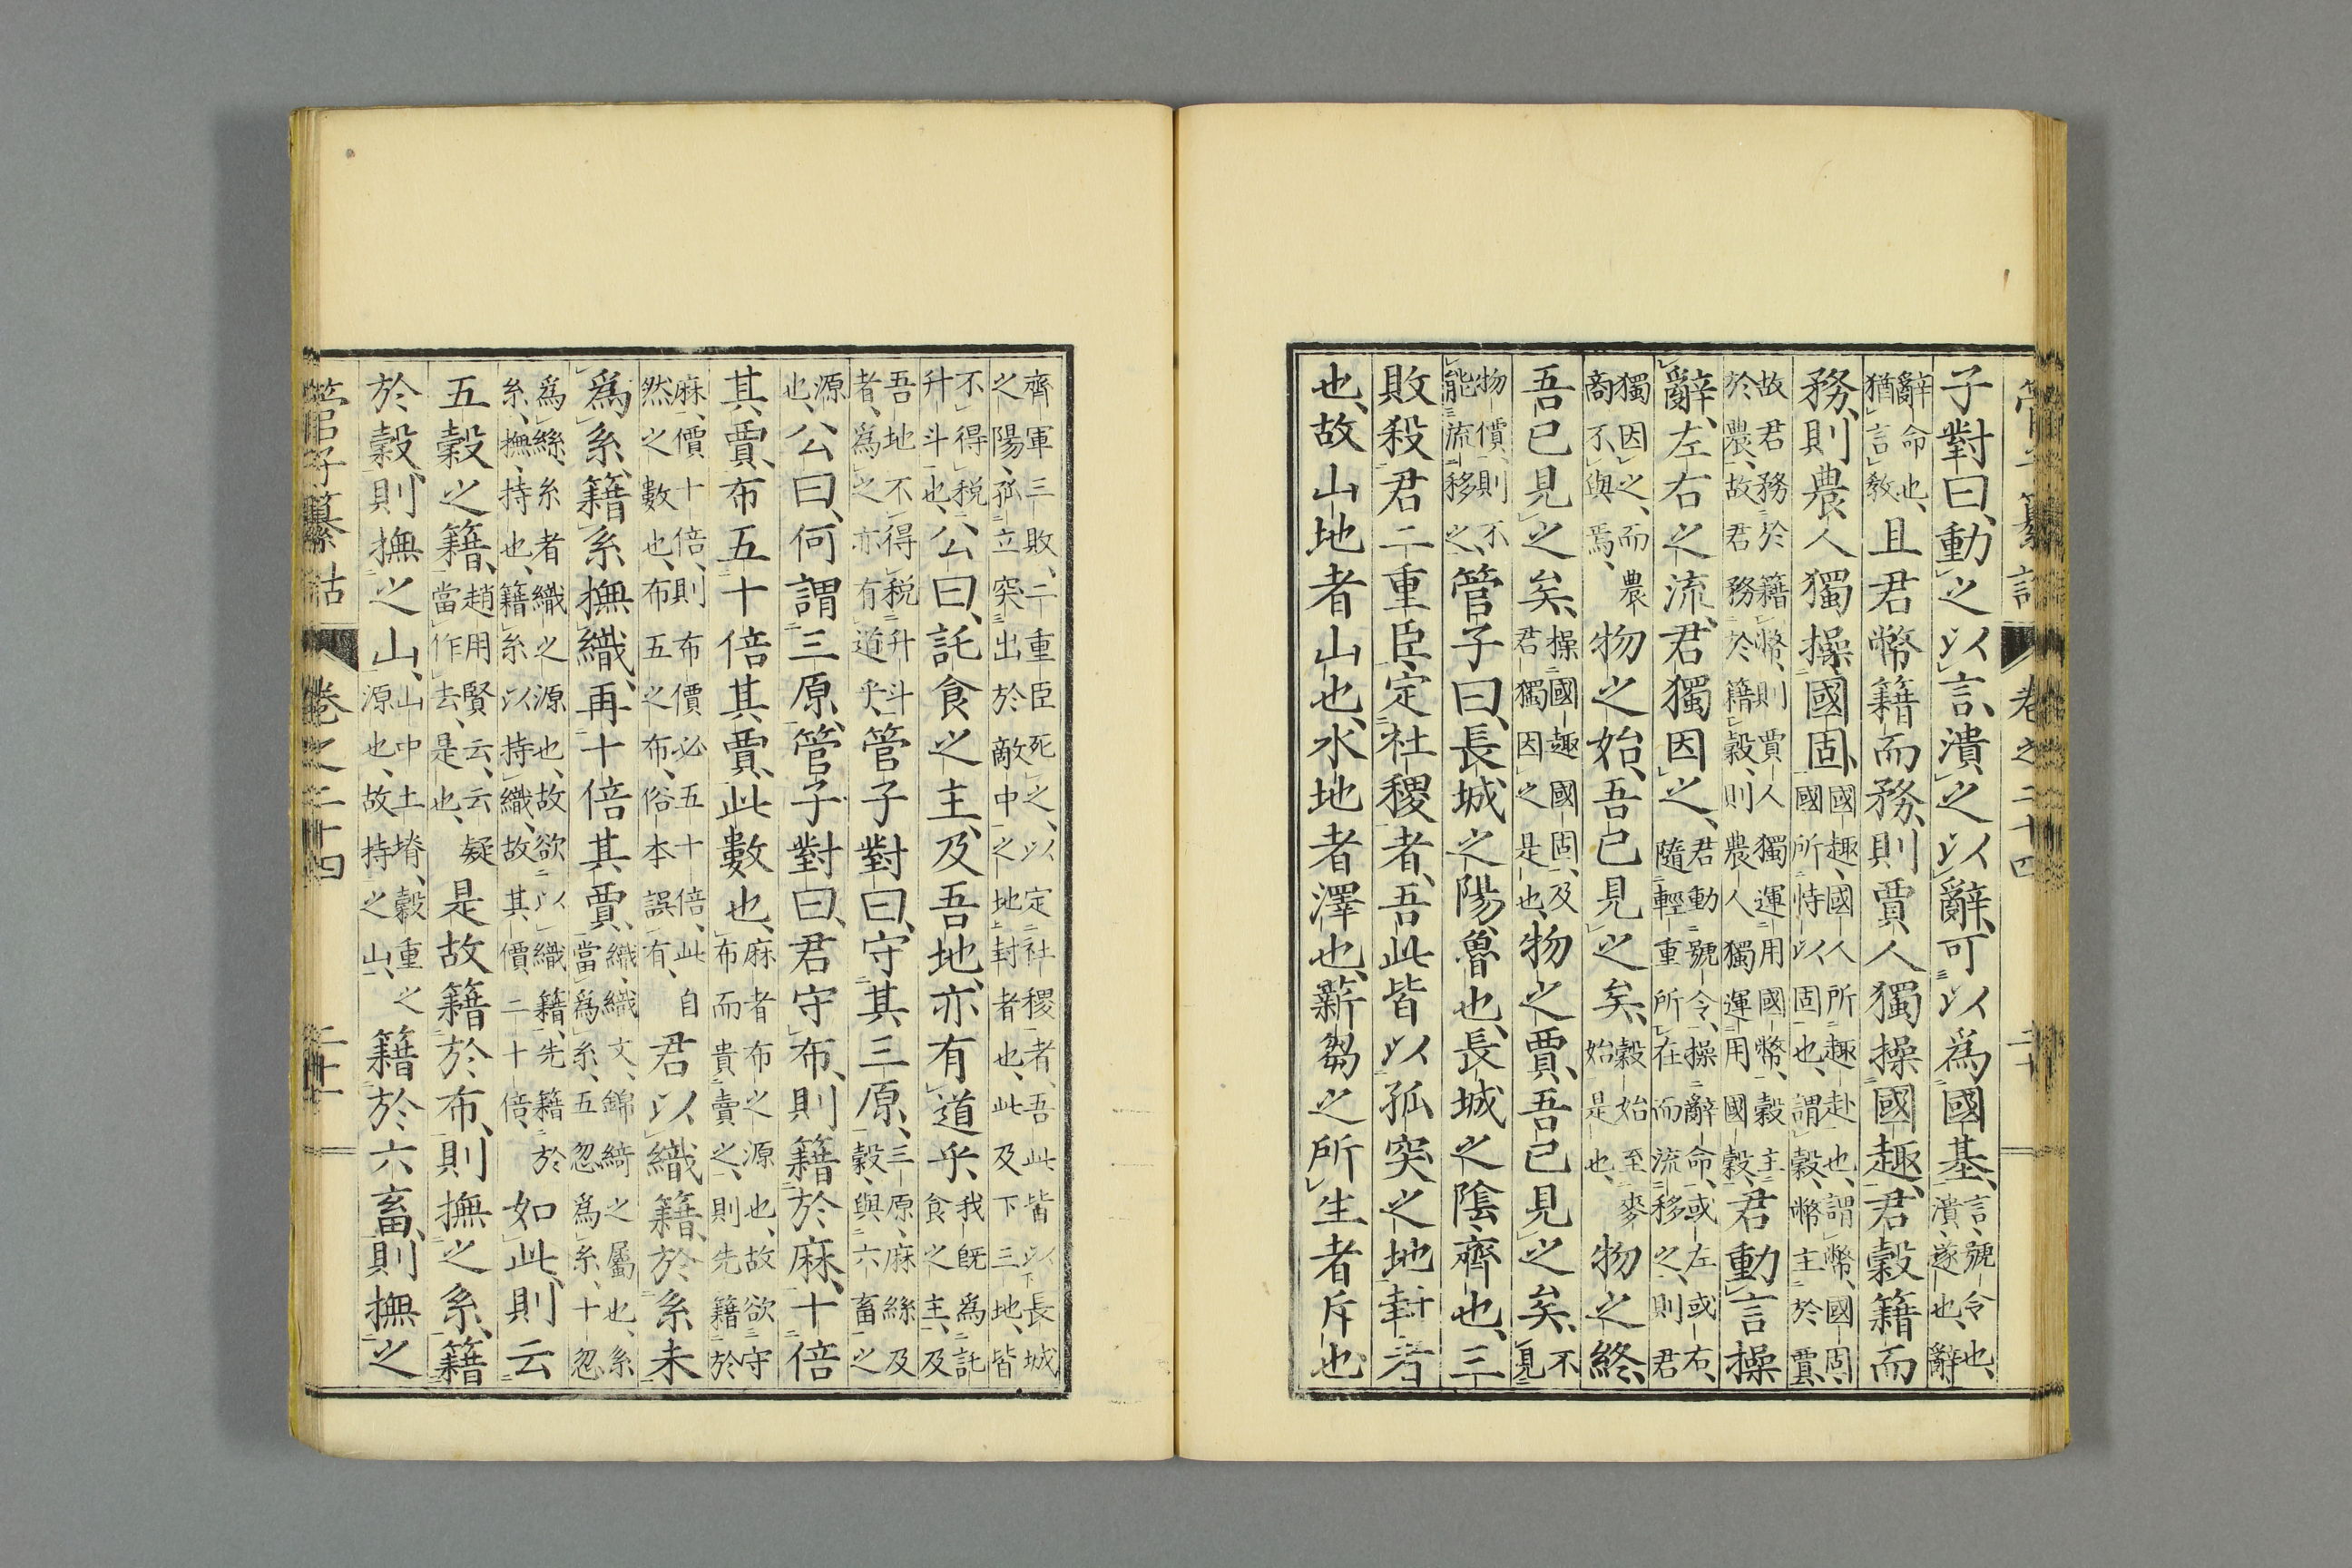 管子纂詁 卷之二十四 二十
子對曰、動之以言、潰之以辭、可以爲國基、言、號令也、潰、遂也、辭
辭命也、猶言教、且君幣籍而務、則賈人獨操國趣、君穀籍而
務、則農人獨操國固、國趣、國人所趣赴也、謂幣、國固、國所恃以固也、謂穀、幣主於賈、
故君務於籍幣、則賈人獨運用國幣、穀主於農、故君務於籍穀、則農人獨運用國穀、君動言操
辭、左右之流、君獨因之、君動號令、操辭命、或左或右、隨輕重所在而流移之、則君
獨因之、而農商不與焉、物之始、吾已見之矣、穀始至麥始是也、物之終、
吾已見之矣、操國趣國固、及君獨因之是也、物之賈、吾已見之矣、不見
物價、則不能流移之、管子曰、長城之陽、魯也、長城之陰、齊也、三
敗殺君二重臣、定社稷者、吾此皆以孤突之地封者
也、故山地者山也、水地者澤也、薪芻之所生者斥也、
齊軍三敗、二重臣死之、以定社稷者、吾此皆以長城之陽、孤立突出於敵中之地封者也、此及下三地、皆
不得税升斗也、公曰、託食之主、及吾地、亦有道乎、我既爲託食之主、及
吾地不得税升斗者、爲之亦有道乎、管子對曰、守其三原、三原、麻絲及穀、與六畜之
源也、公曰、何謂三原、管子對曰、君守布、則籍於麻、十倍
其賈、布五十倍其賈、此數也、麻者布之源也、故欲守布而貴賣之、則先籍於
麻、價十倍、則布價必五十倍、此自然之數也、布五之布、俗本誤有、君以織籍、於系未
爲系、籍系撫織、再十倍其賈、織、織文、錦綺之屬也、系當爲系、五忽爲系、十忽
爲絲、糸者織之源也、故欲以織籍、先籍於糸、撫、持也、籍系以持織、故其價二十倍、如此、則云
五穀之籍、趙用賢云、云疑當作去、是也、是故籍於布、則撫之系、籍
於穀、則撫之山、山中土堉、穀重之源也、故持之山、籍於六畜、則撫之
管子纂詁 卷之二十四 二十一